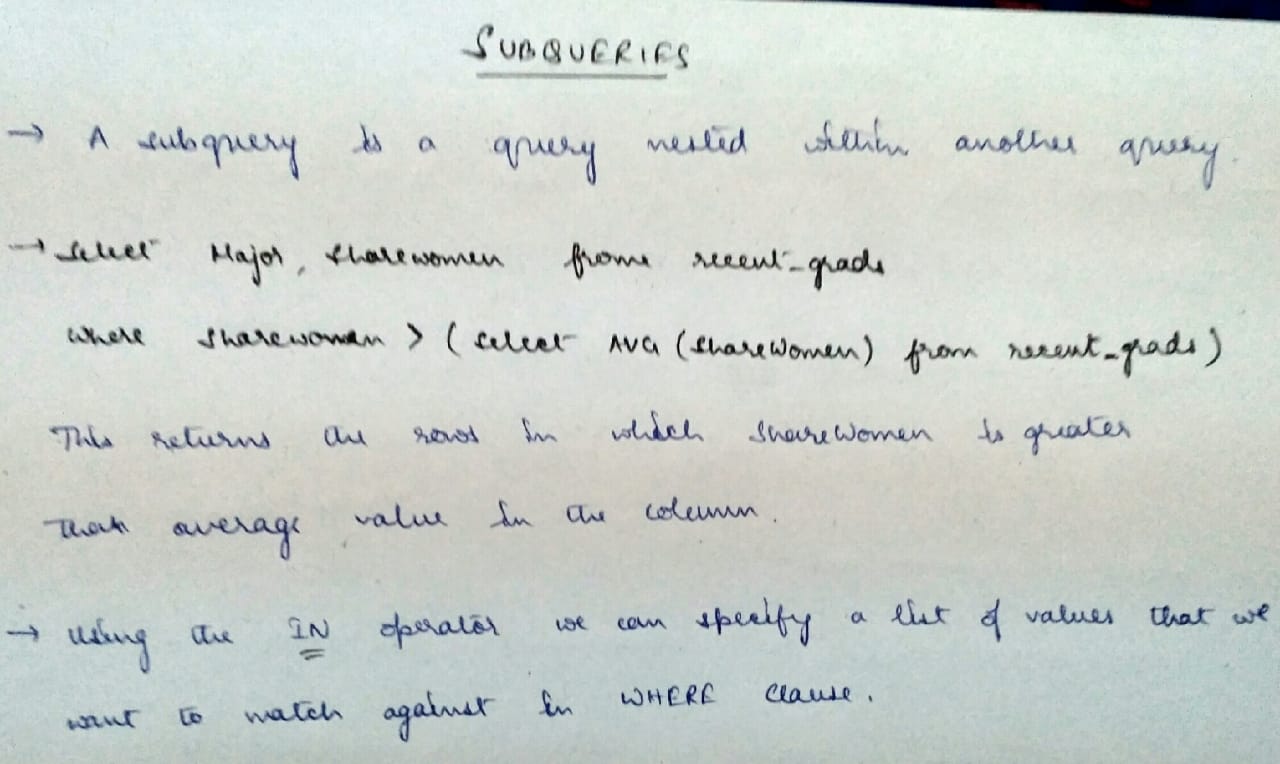 SUBQUERIES
→ A subquery is a query nested within another query.
→ Select Major, sharewomen from recent_grads
where sharewomen > (select AVG (ShareWomen) from recent_grads)
This returns the rows in which ShareWomen is greater
than average value in the column.
→ Using the IN operator we can specify a list of values that we
want to match against in WHERE clause.